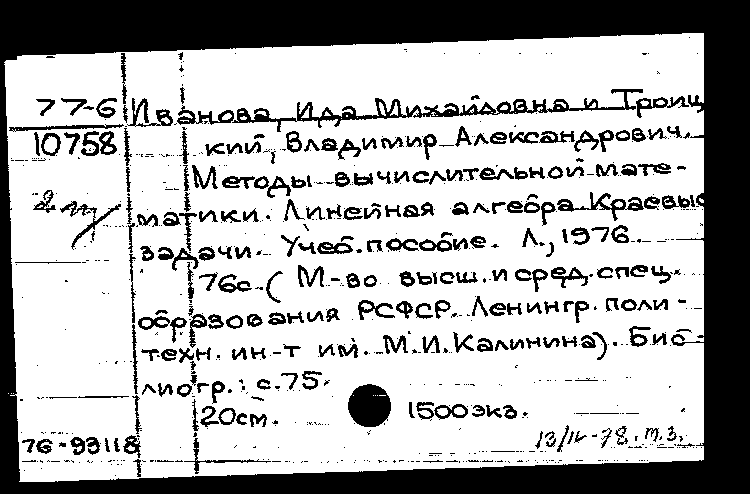 77-6
10758
Иванова, Ида Михайловна и Троиц
кий, Владимир Александрович.
Методы вычислительной мате-
матики. Линейная алгебра. Краевые
задачи. Учеб. пособие. Л., 1976.
76с. ( М-во высш. и сред. спец.
образования РСФСР. Ленингр. поли-
техн. ин-т им. М.И. Калинина). Биб-
лиогр.: с.75.
20см. 1500экз.
76-99118
13/IV-78. т.з.